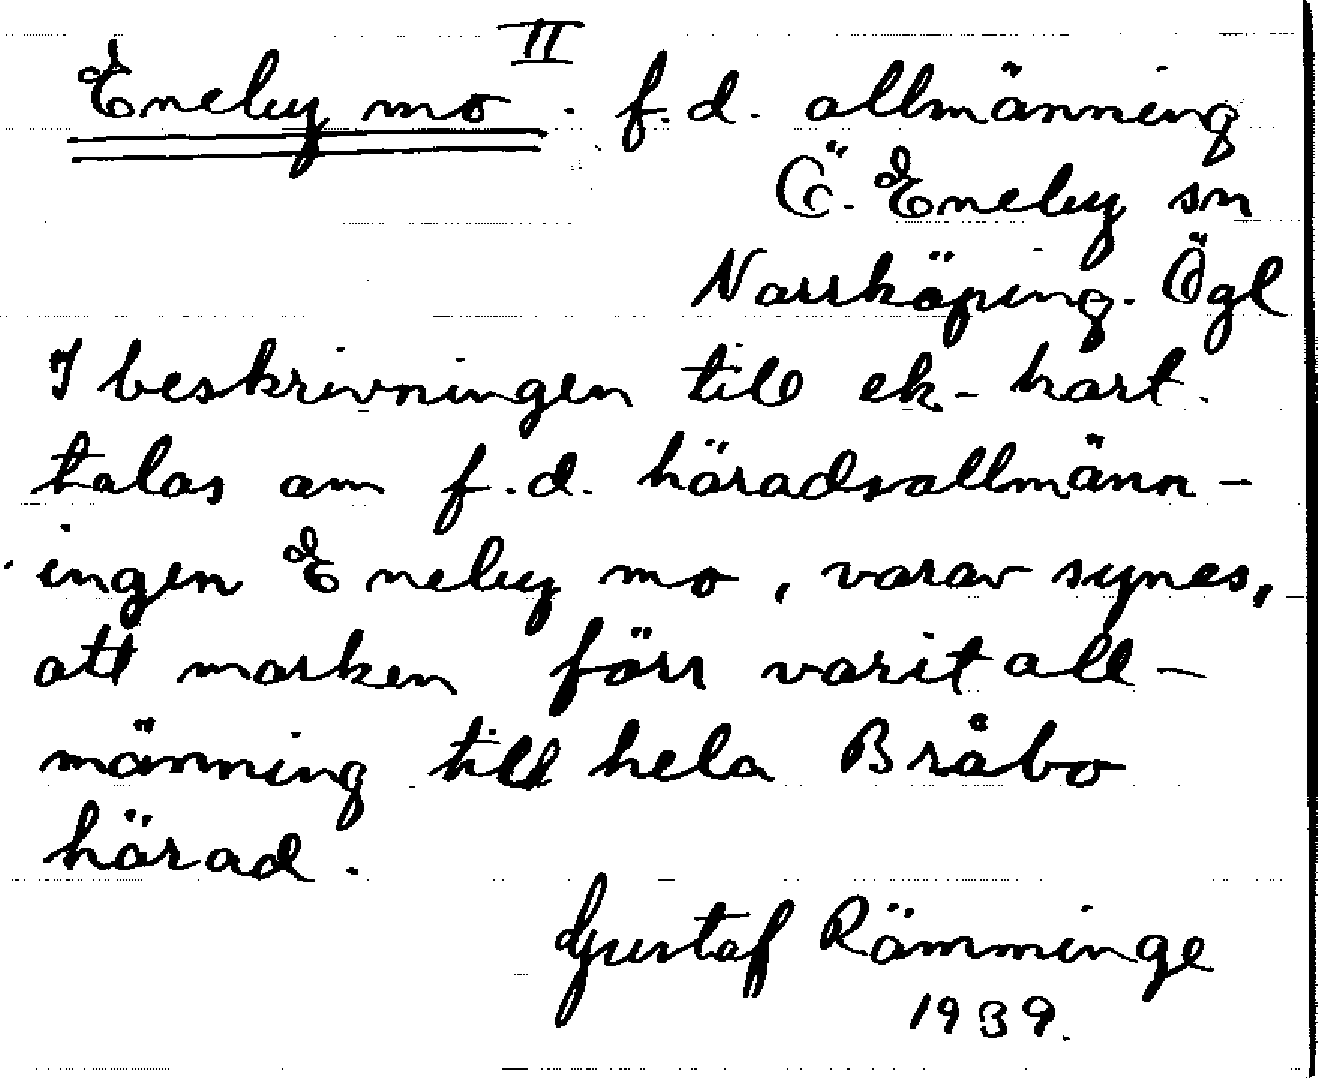 II
Eneby mo. f.d. allmänning
Ö. Eneby sn
Norrköping. Ögl
I beskrivningen till ek-kart.
talas om f.d. häradsallmänn-
ingen Eneby mo, varav synes,
att marken förr varit all-
männing till hela Bråbo
härad.
Gustaf Römminge
1939.